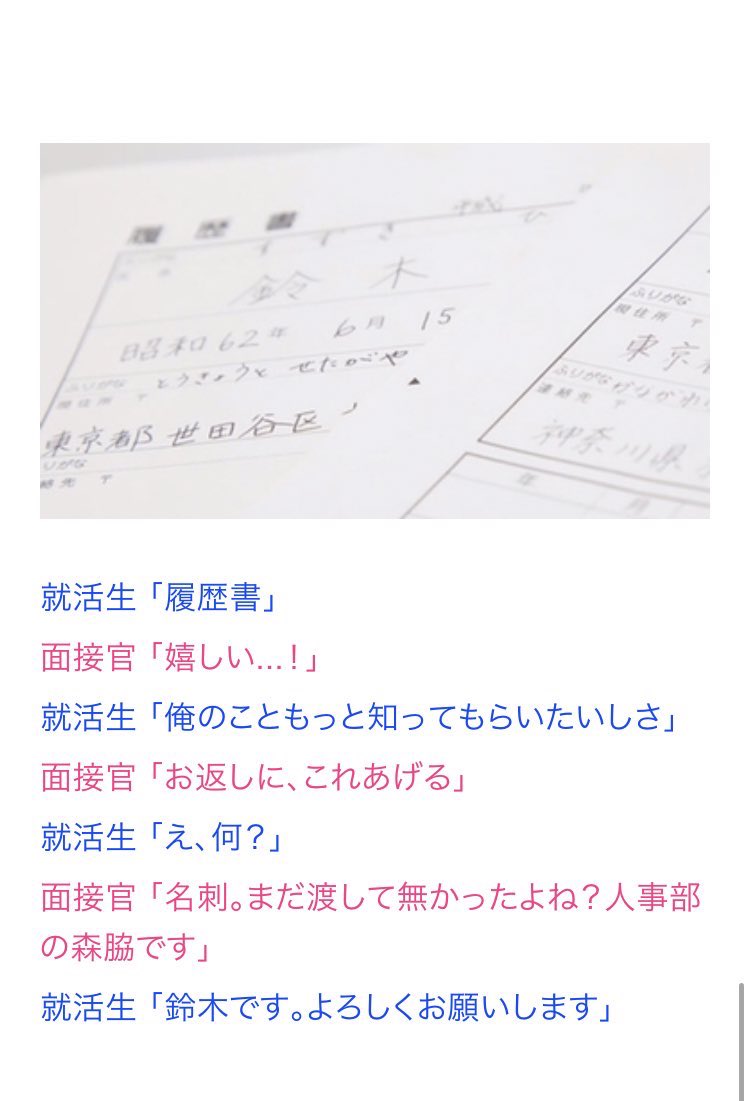 履歴書
すずき
鈴木
昭和62年 6月 15
ふりがな とうきょうと せたがや
現住所 〒
東京都 世田谷区
りがな
絡先 〒
ふりがな
現住所 〒
東京
ふりがな かながわ
連絡先 〒
神奈川県
年 月
就活生「履歴書」
面接官「嬉しい...！」
就活生「俺のこともっと知ってもらいたいしさ」
面接官「お返しに、これあげる」
就活生「え、何？」
面接官「名刺。まだ渡して無かったよね？人事部
の森脇です」
就活生「鈴木です。よろしくお願いします」